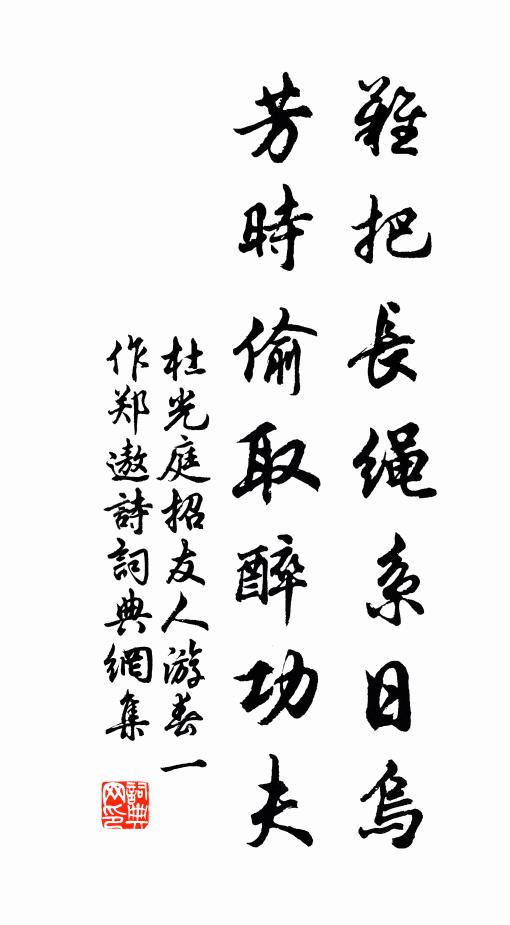 難把長绳系日烏
芳時偷取醉功夫
杜光庭招友人游春一
作郑遨詩詞典網集
詞典网印